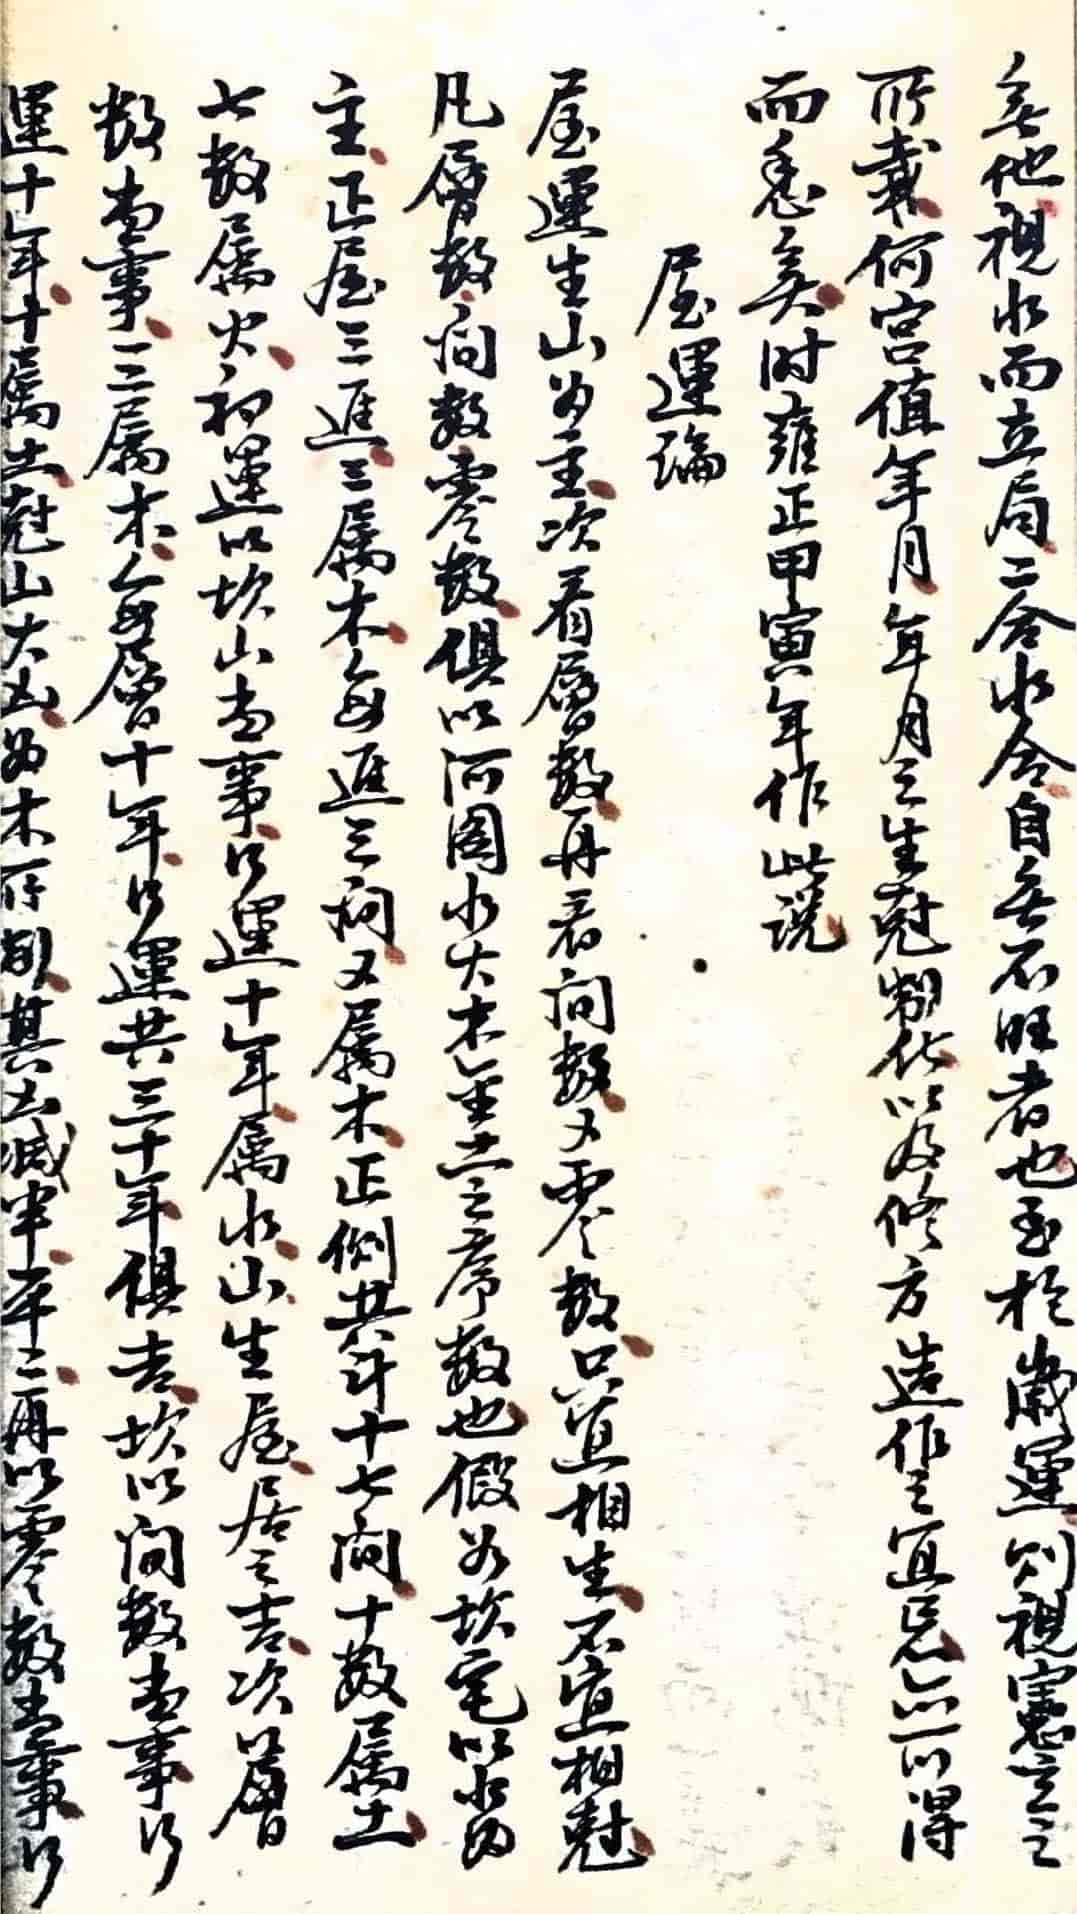 無他視水而立局二合水合自無不旺者也至於歲運則視憲書之
所載何宮值年月年月之生尅制化以及修方造作之宜忌亦可以得
而悉矣时雍正甲寅年作此説
屋運論
屋運生山为主次看層數再看间數又零數只宜相生不宜相尅
凡層數间數零數俱以河圖水火木金土之序數也假如坎宅以水为
主正屋三進三属木每進三间又属木正側共计十七间十數属土
七數属火初運以坎山當事行運十年属水山生屋居之吉次以層
數當事三属木每層十年行運共三十年俱吉坎以间數當事行
運十年十属土尅山大凶为木所制其凶減半平二再以零數當事行